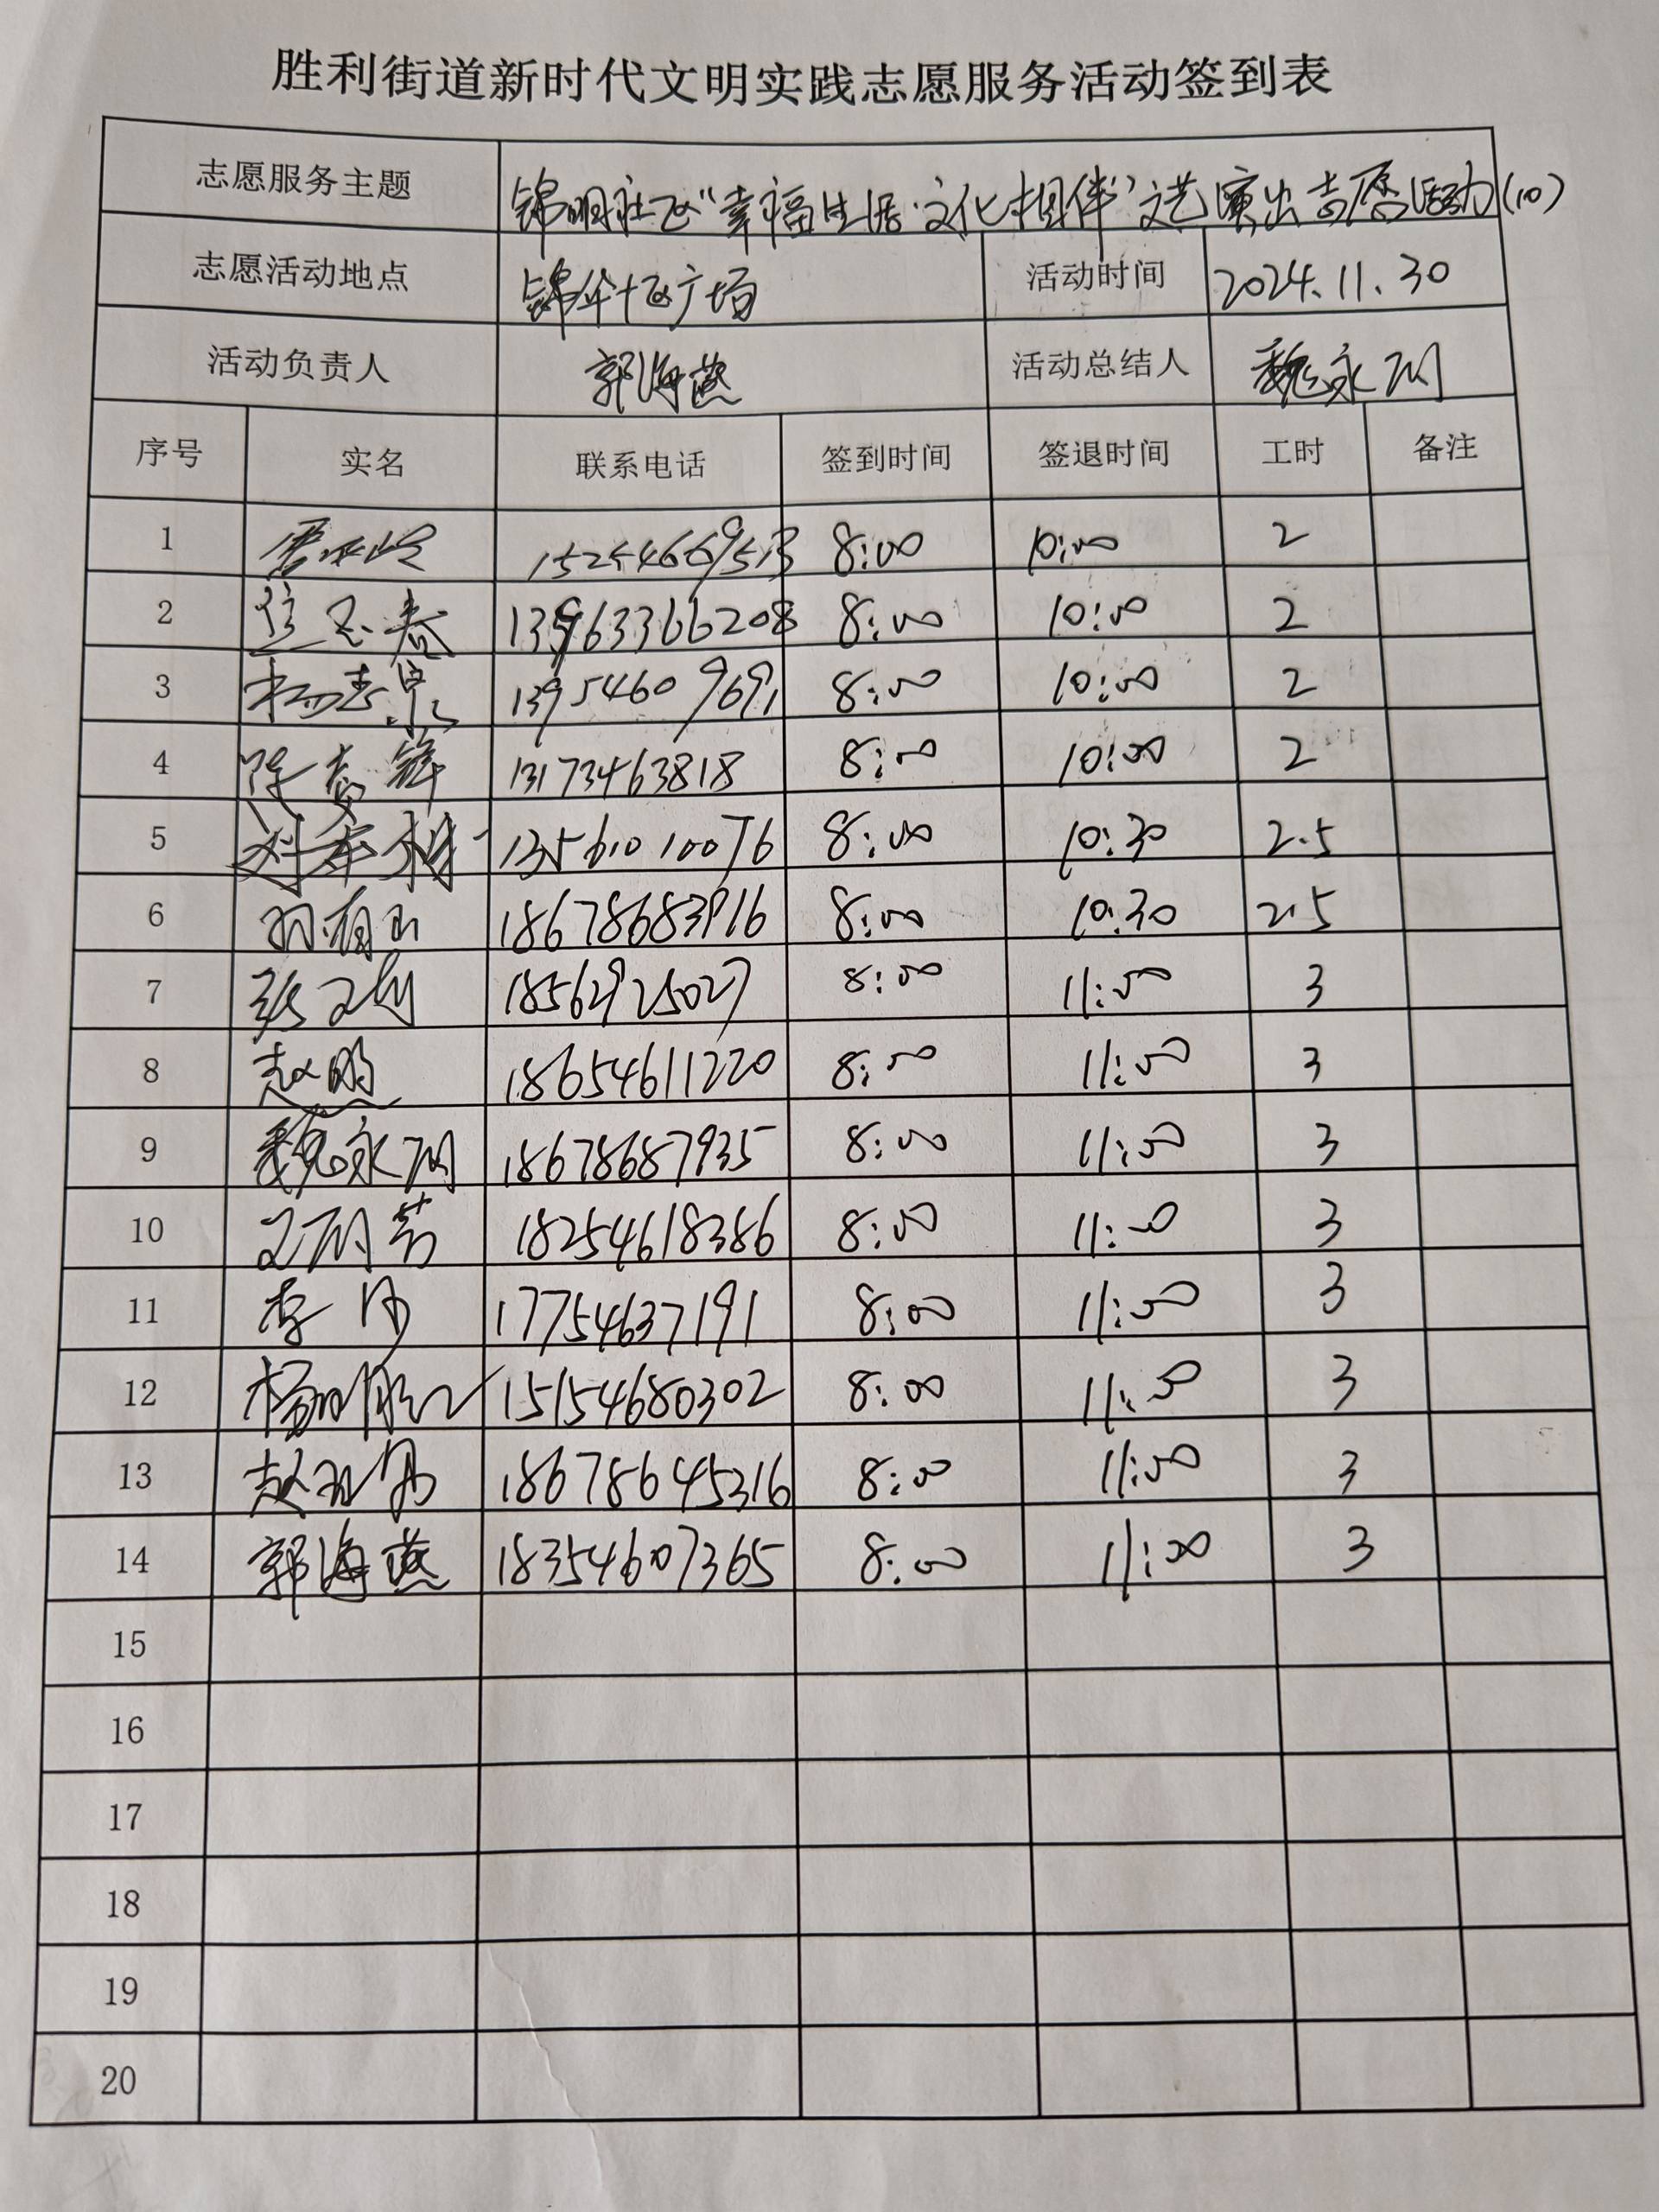 胜利街道新时代文明实践志愿服务活动签到表
志愿服务主题 锦明社区“幸福生活·文化相伴”文艺演出志愿活动(10)
志愿活动地点 锦华十区广场 活动时间 2024.11.30
活动负责人 郭海燕 活动总结人 魏永刚
序号 实名 联系电话 签到时间 签退时间 工时 备注
1 15254669513 8:00 10:00 2
2 13963366208 8:00 10:00 2
3 杨志泉 13954609691 8:00 10:00 2
4 陈志辉 13173463818 8:00 10:00 2
5 刘本相 13561010076 8:00 10:30 2.5
6 18678683916 8:00 10:30 2.5
7 18562925027 8:00 11:00 3
8 赵明 18654611220 8:00 11:00 3
9 魏永刚 18678687935 8:00 11:00 3
10 18254618386 8:00 11:00 3
11 17754637191 8:00 11:00 3
12 15154680302 8:00 11:00 3
13 18678645316 8:00 11:00 3
14 郭海燕 18354607365 8:00 11:00 3
15
16
17
18
19
20